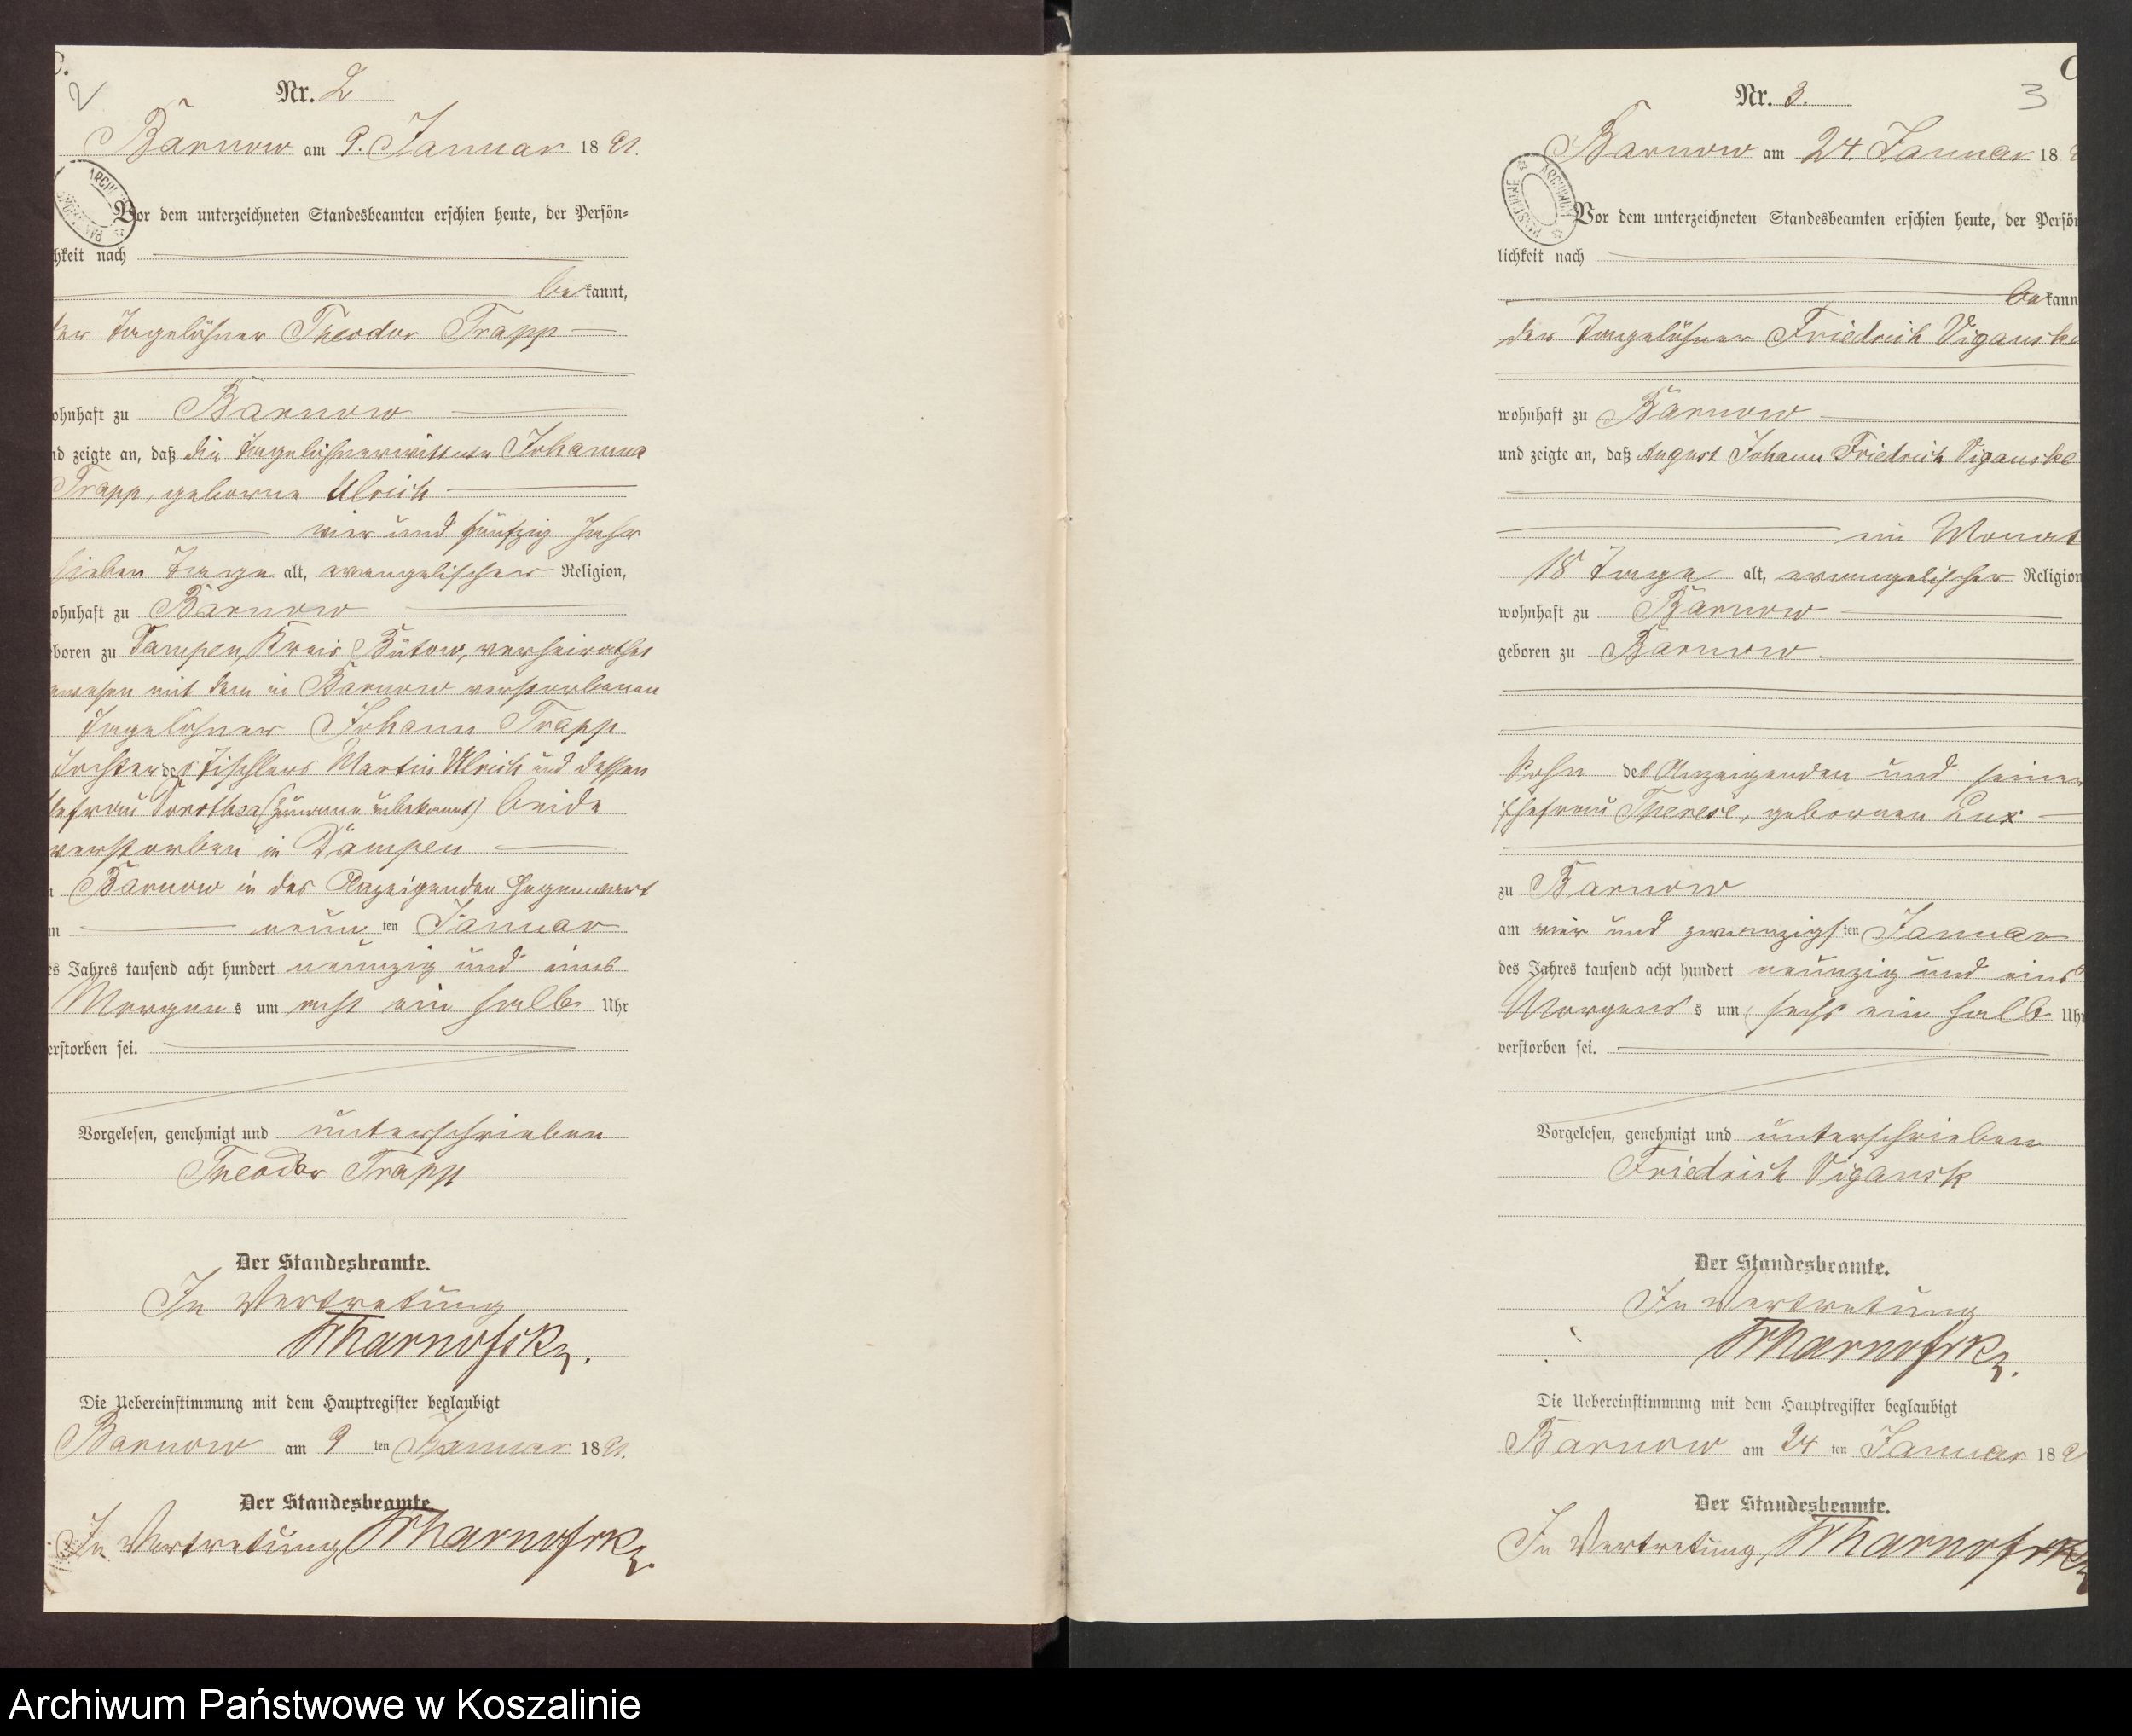 C.
2
Nr. 2
Barnow am 9. Januar 18 91.
Vor dem unterzeichneten Standesbeamten erschien heute, der Persön-
hkeit nach
be kannt,
der Tagelöhner Theodor Trapp
ohnhaft zu Barnow
nd zeigte an, daß die Tagelöhnerwittwe Johanna
Trapp, geborne Ulrich
vier und fünfzig Jahr
sieben Tage alt, evangelischer Religion,
ohnhaft zu Barnow
boren zu Dampen, Kreis Bütow, verheirathet
gewesen mit dem in Barnow verstorbenen
Tagelöhner Johann Trapp
Tochter des Tischlers Martin Ulrich und dessen
Ehefrau Dorothea (Zuname unbekannt) beide
verstorben in Dampen
Barnow in des Anzeigenden Gegenwart
m neun ten Januar
es Jahres tausend acht hundert neunzig und eins
Morgens um acht ein halb Uhr
erstorben sei.
Vorgelesen, genehmigt und unterschrieben
Theodor Trapp
Der Standesbeamte.
In Vertretung
Die Uebereinstimmung mit dem Hauptregister beglaubigt
Barnow am 9 ten Januar 18 91.
Der Standesbeamte.
In Vertretung
C
3
Nr. 3.
Barnow am 24. Januar 18 9
ARCHIWUM PAŃSTWOWE
Vor dem unterzeichneten Standesbeamten erschien heute, der Persön
lichkeit nach
be kann
der Tagelöhner Friedrich Viganske
wohnhaft zu Barnow
und zeigte an, daß August Johann Friedrich Viganske
ein Monat
18 Tage alt, evangelischer Religion
wohnhaft zu Barnow
geboren zu Barnow
Sohn des Anzeigenden und seiner
Ehefrau Therese, gebornen Lux
zu Barnow
am vier und zwanzigs ten Januar
des Jahres tausend acht hundert neunzig und eins
Morgens s um sechs ein halb Uhr
verstorben sei.
Vorgelesen, genehmigt und unterschrieben
Friedrich Vigansk
Der Standesbeamte.
In Vertretung
Die Uebereinstimmung mit dem Hauptregister beglaubigt
Barnow am 24 ten Januar 18 9
Der Standesbeamte.
In Vertretung,
Archiwum Państwowe w Koszalinie